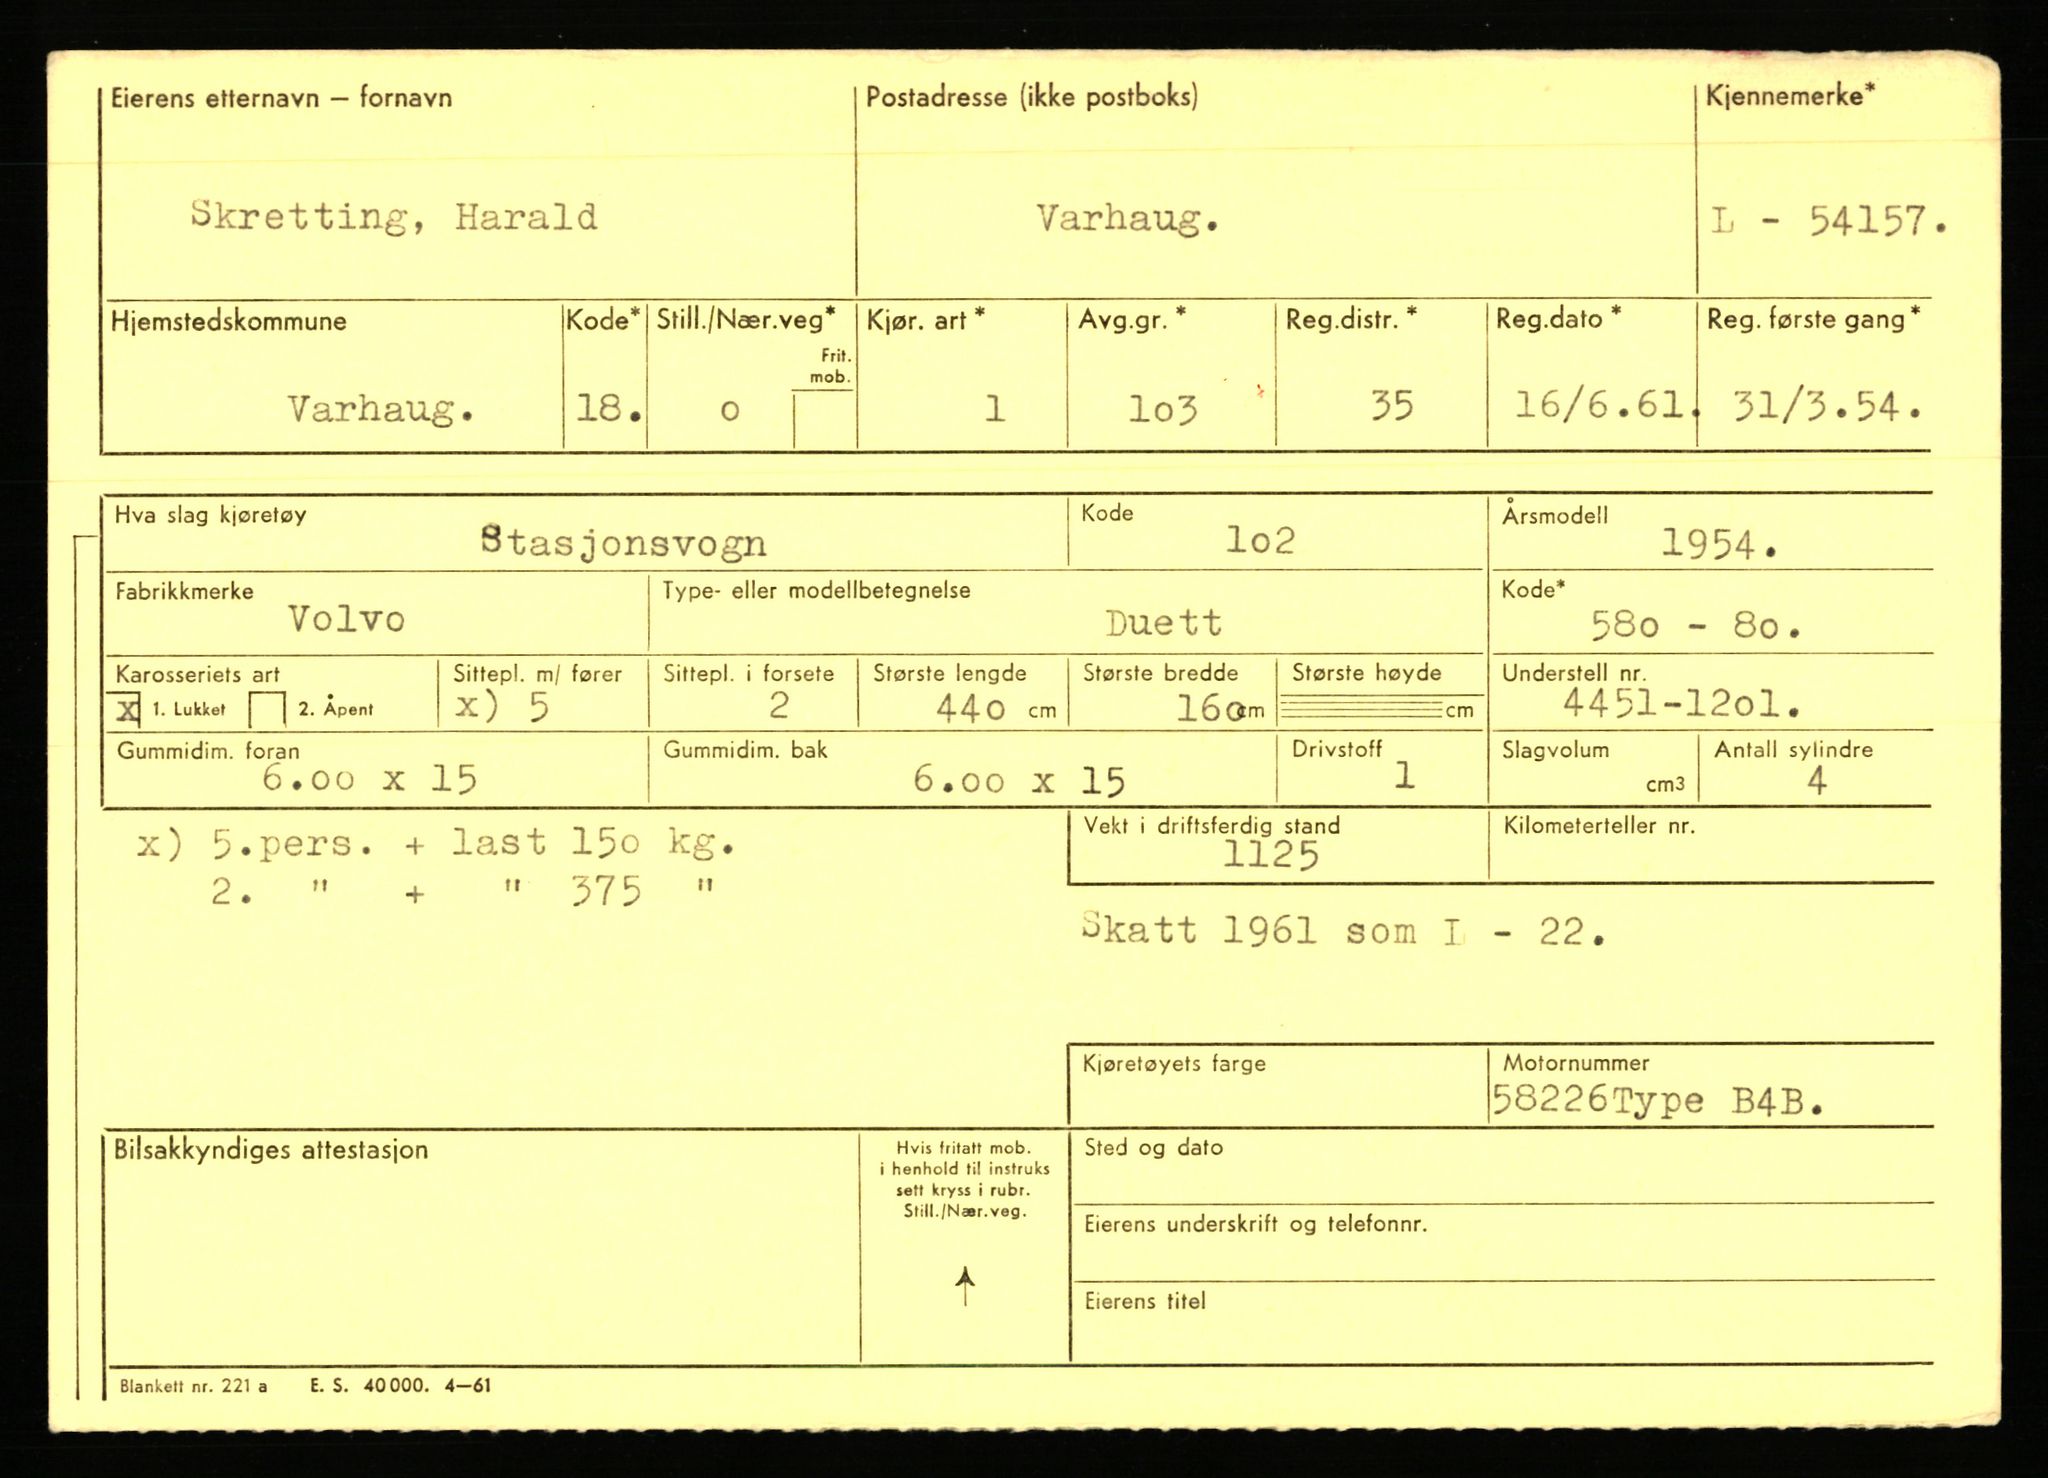 Eierens etternavn – fornavn Postadresse (ikke postboks) Kjennemerke*
Skretting, Harald Varhaug. L - 54157.
Hjemstedskommune Kode* Still./Nær.veg* Kjør. art* Avg.gr.* Reg.distr.* Reg.dato* Reg. første gang*
Frit.
mob.
Varhaug. 18. o 1 1o3 35 16/6.61. 31/3.54.
Hva slag kjøretøy Kode Årsmodell
Stasjonsvogn 1o2 1954.
Fabrikkmerke Type- eller modellbetegnelse Kode*
Volvo Duett 58o - 8o.
Karosseriets art Sittepl. m/ fører Sittepl. i forsete Største lengde Største bredde Største høyde Understell nr.
X 1. Lukket 2. Åpent x) 5 2 44o cm 16o cm cm 4451-12o1.
Gummidim. foran Gummidim. bak Drivstoff Slagvolum Antall sylindre
6.oo x 15 6.oo x 15 1 cm3 4
x) 5.pers. + last 15o kg. Vekt i driftsferdig stand Kilometerteller nr.
1125
2. " + " 375 "
Skatt 1961 som L - 22.
Kjøretøyets farge Motornummer
58226Type B4B.
Bilsakkyndiges attestasjon Hvis fritatt mob. Sted og dato
i henhold til instruks
sett kryss i rubr.
Still./Nær.veg.
Eierens underskrift og telefonnr.
Eierens titel
Blankett nr. 221 a E. S. 40 000. 4–61